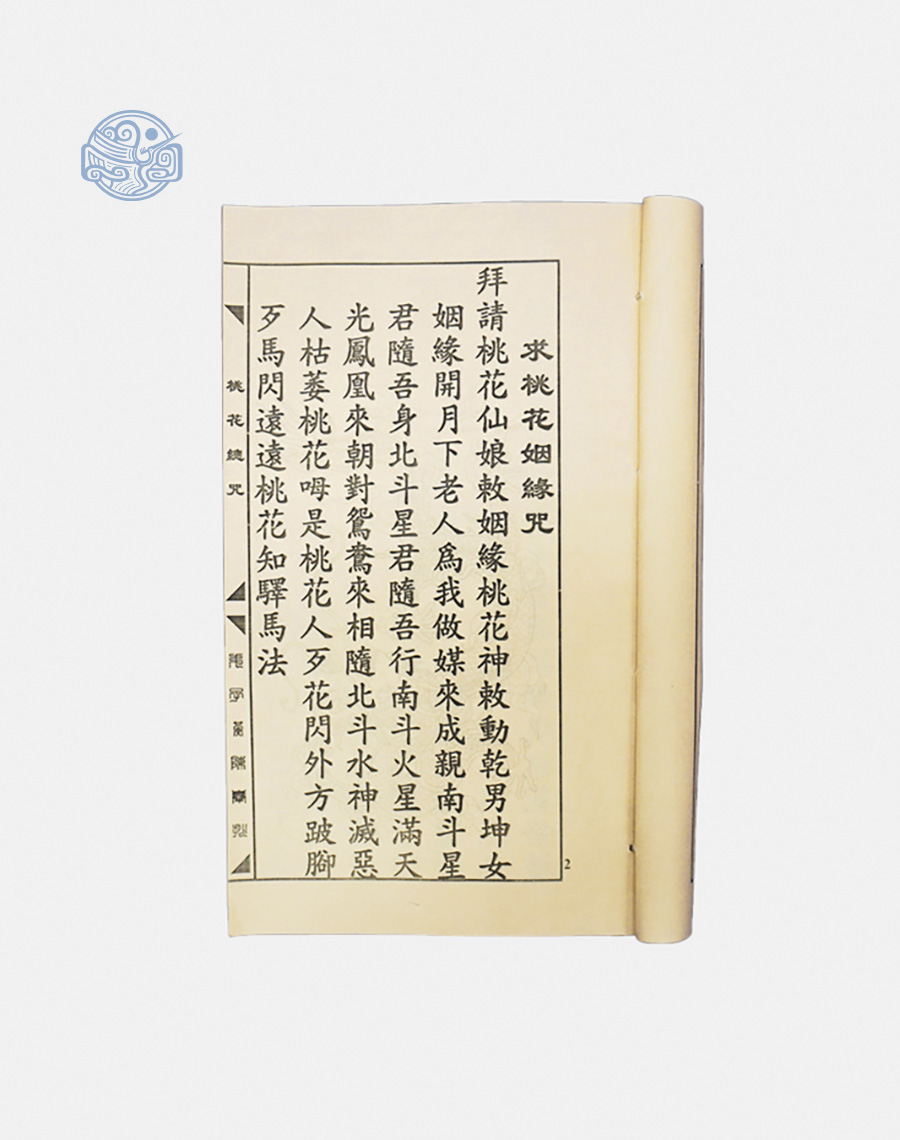 求桃花姻緣咒
拜請桃花仙娘敕姻緣桃花神敕動乾男坤女
姻緣開月下老人爲我做媒來成親南斗星
君隨吾身北斗星君隨吾行南斗火星滿天
光鳳凰來朝對鴛鴦來相隨北斗水神滅惡
人枯萎桃花呣是桃花人歹花閃外方跛腳
歹馬閃遠遠桃花知驛馬法
桃花總咒
2